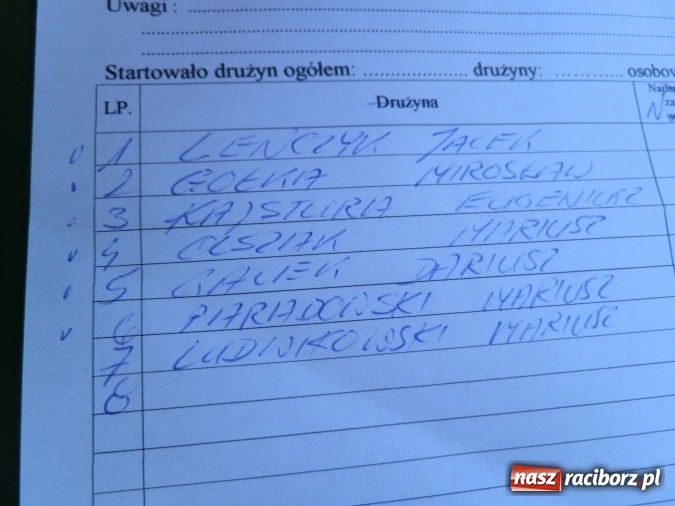 Uwagi :
Startowało drużyn ogółem: .................... drużyny: ............ osobow
LP. Drużyna
N
1 LEŃCZYK JACEK
2 MIROSŁAW
3 EUGENIUSZ
4 OLSZAK MARIUSZ
5 DARIUSZ
6 MARIUSZ
7 LUDWIKOWSKI MARIUSZ
8
nasz raciborz.pl